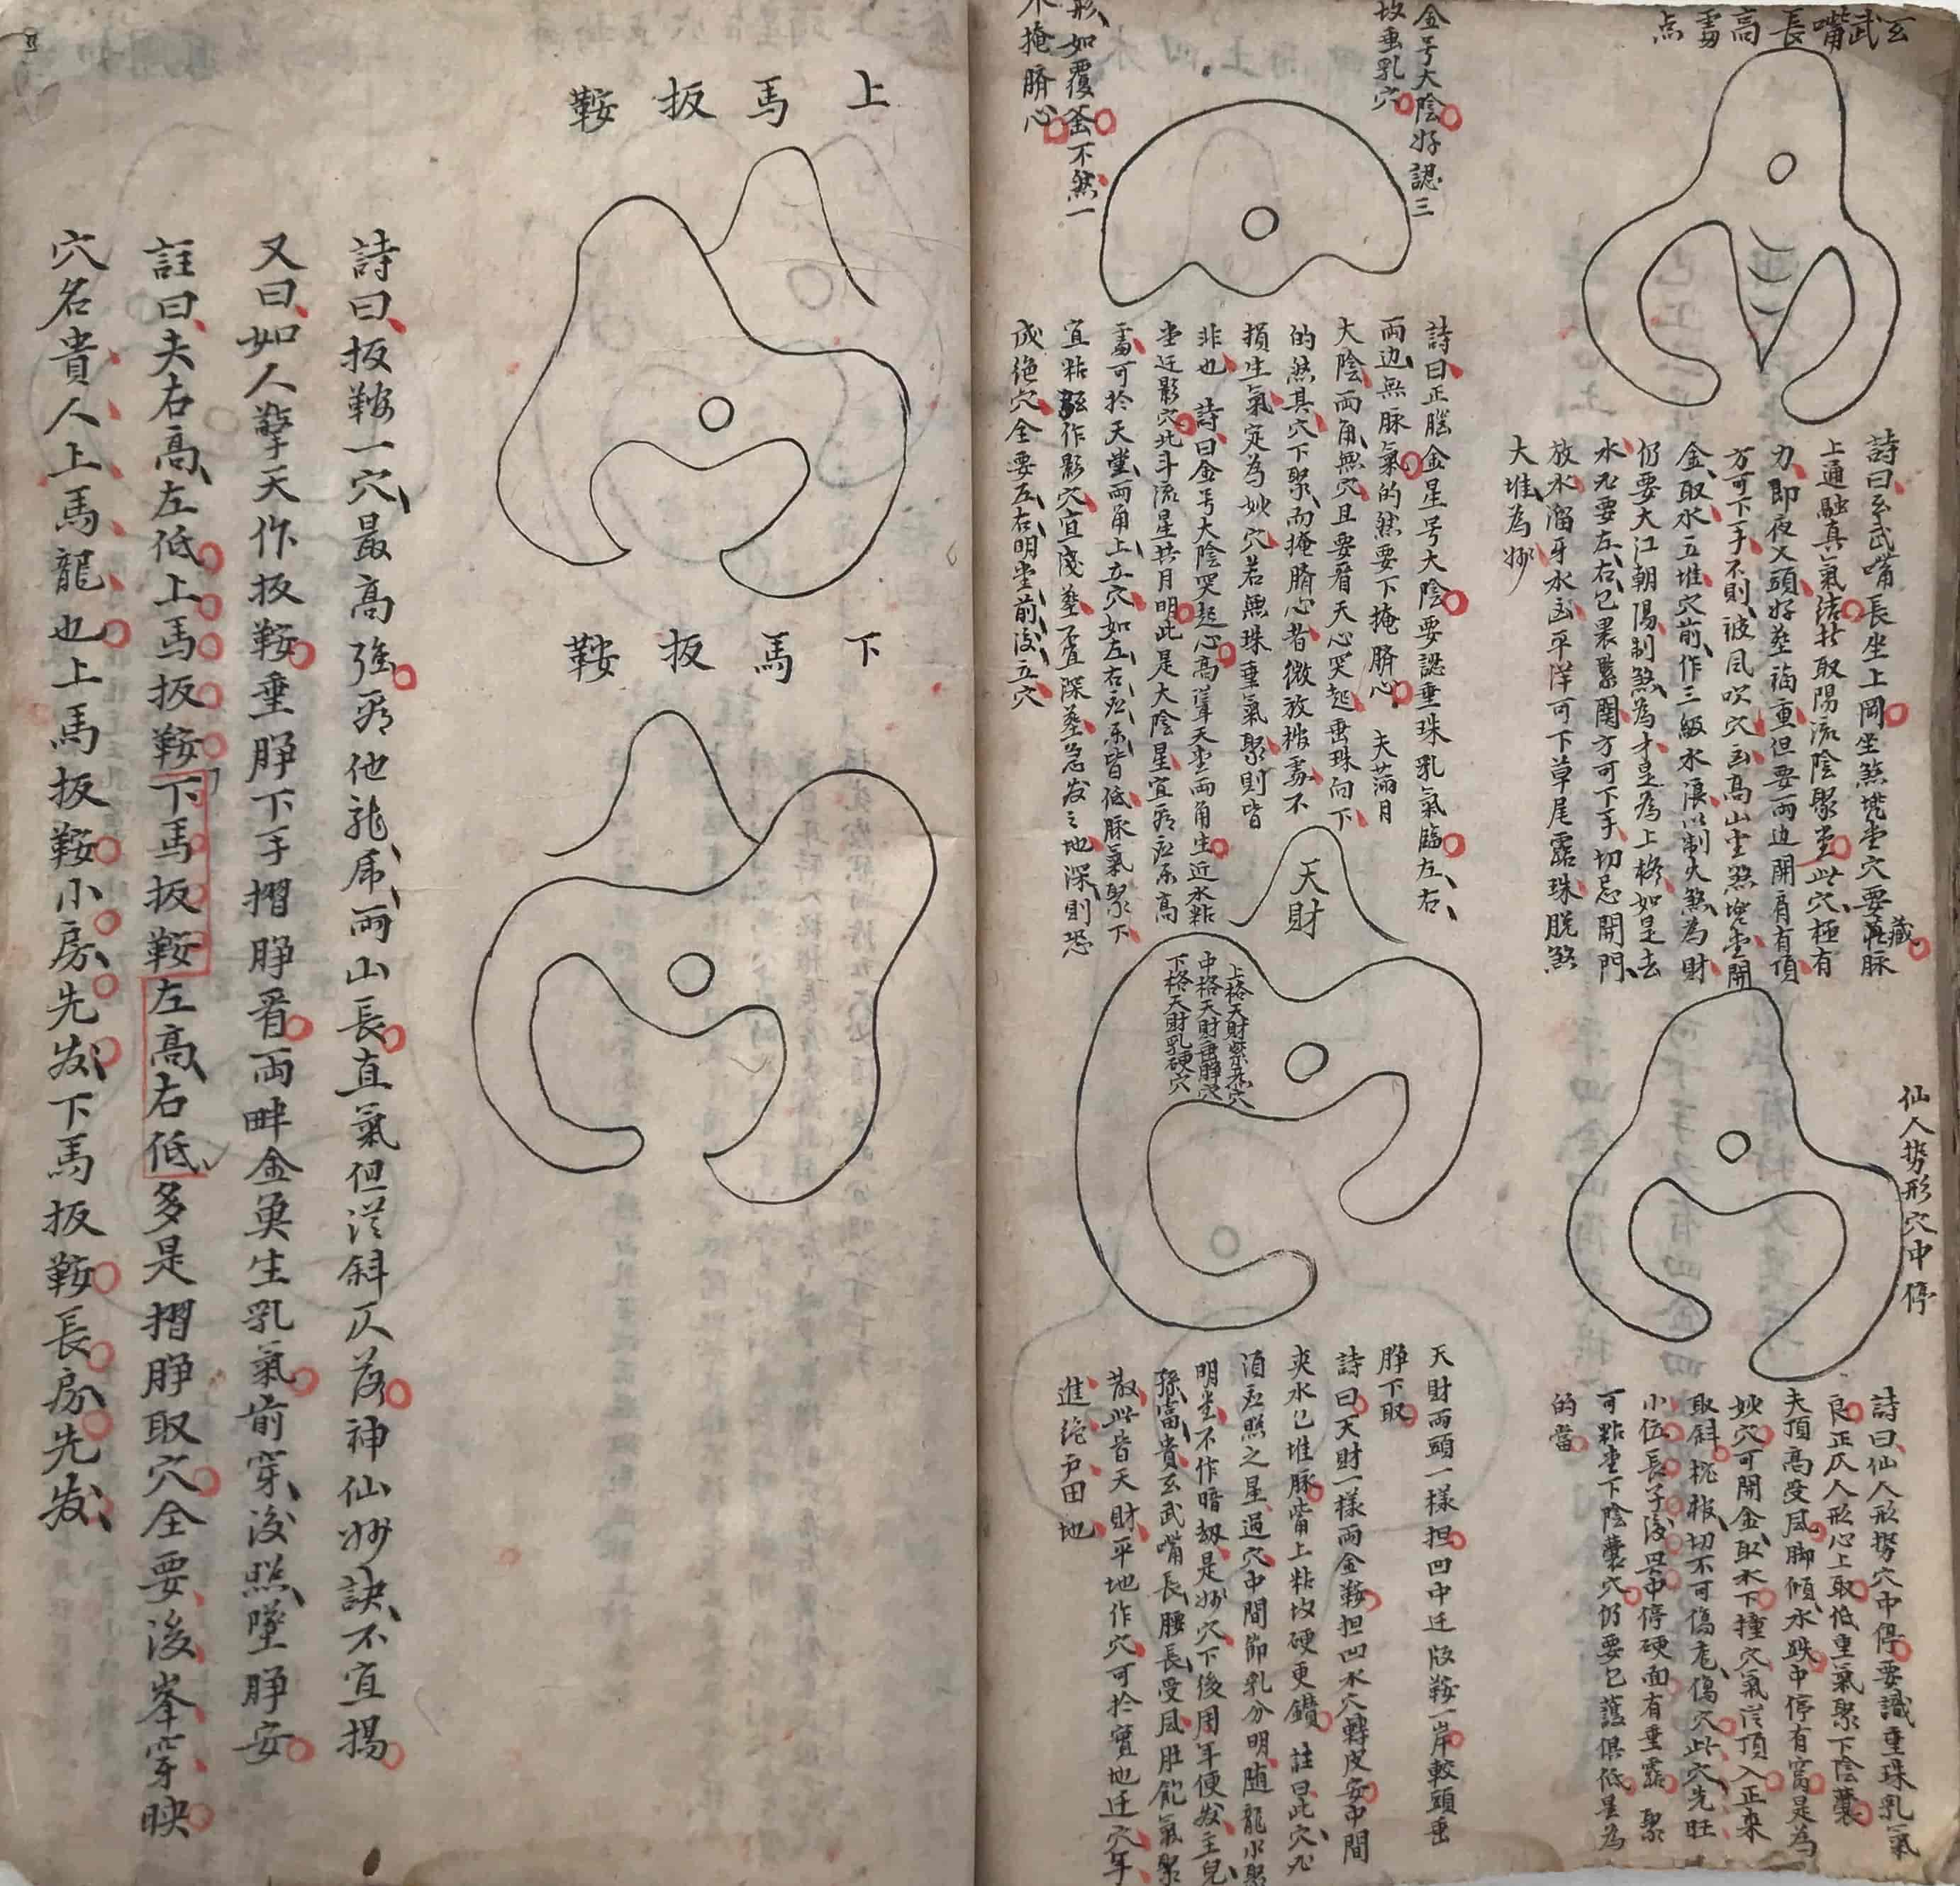 玄武嘴長高露点
詩曰玄武嘴長坐上岡坐煞凭堂穴要藏
上通融真氣結於取陽流陰聚堂此穴極有
力即夜叉頭好塟福重但要兩边開肩有頂
方可下手不則被風吹穴
金取水五堆穴前作三級水浪以制火煞為財
仍要大江朝陽制煞為才是為上格如是去
水凢要左右包裹緊関方可下手切忌開門
放水溜牙水出平洋可下草尾露珠脱煞
大堆為妙
仙人勢形穴中停
詩曰仙人形勢穴中停要識垂珠乳氣
良正仄人形心上取低垂氣聚下陰囊
夫頂高受風脚傾水跌中停有窩是為
妙穴可開金取水下撞穴氣從頂入正来
取斜枕報切不可傷危傷穴此穴先旺
小位長子後與中停硬面有垂露聚
可點堂下陰囊穴仍要包護俱低是為
的當
金号大陰好認三
坟垂乳穴
形如覆釜不然一
不掩臍心
詩曰正腦金星号大陰要認垂珠乳氣臨左右
兩边無脉氣的然要下掩臍心 夫滿月
大陰兩角無穴且要看天心突起垂珠向下
的然其穴下聚而掩臍心者微放梢雾不
損生氣定為妙穴若無珠垂氣聚則皆
非也 詩曰金号大陰突起心高葬天堂兩角生近水粘
堂迁影穴此斗流星共月明此是大陰星宜看应乐高
露可扵天堂兩角上立穴如左右应乐皆低脉氣聚下
宜粘坛作影穴宜浅塟不宜深塟急发之地深則恐
成绝穴全要左右明堂前後立穴
天財
上格天財
中格天財垂脺穴
下格天財乳硬穴
天財兩頭一樣担凹中迁版鞍一岸較頭垂
脺下取
詩曰天財一樣兩金鞍担凹水穴轉皮安中間
夾水包堆脉嘴上粘坟硬更鑽 註曰此穴凢
須应照之星過穴中間節乳分明随龍水聚
明堂不作暗刼是妙穴下後周年便发主兒
孫富貴玄武嘴長腰長受風肚飽氣聚
散此皆天財平地作穴可扵實地迁穴年
進絶戸田地
上馬扳鞍
下馬扳鞍
詩曰扳鞍一穴最高強看他龍虎兩山長直氣但従斜仄落神仙妙訣不宜揚
又曰如人擎天作扳鞍垂脺下手摺脺看兩畔金魚生乳氣前穿後照墜脺安
註曰夫右高左低上馬扳鞍下馬扳鞍左高右低多是摺脺取穴全要後峯穿映
穴名貴人上馬龍也上馬扳鞍小房先发下馬扳鞍長房先发